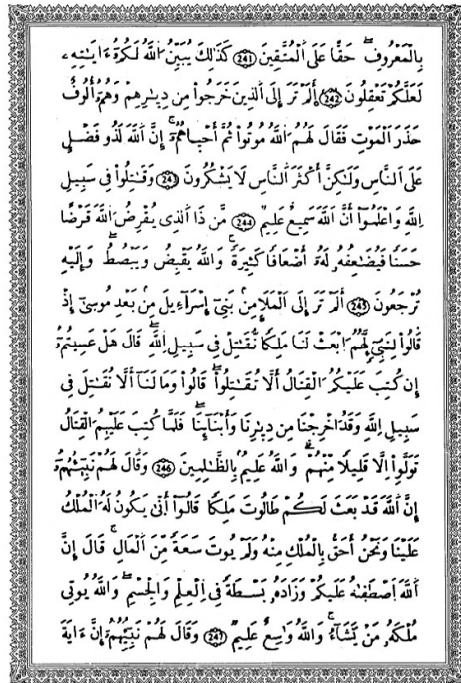 بِالْمَعْرُوفِ حَقًّا عَلَى الْمُتَّقِينَ (241) كَذَٰلِكَ يُبَيِّنُ اللَّهُ لَكُمْ ءَايَٰتِهِ
لَعَلَّكُمْ تَعْقِلُونَ (242) أَلَمْ تَرَ إِلَى الَّذِينَ خَرَجُوا مِن دِيَٰرِهِمْ وَهُمُ أُلُوفٌ
حَذَرَ الْمَوْتِ فَقَالَ لَهُمُ اللَّهُ مُوتُوا ثُمَّ أَحْيَاهُمُ إِنَّ اللَّهَ لَذُو فَضْلٍ
عَلَى النَّاسِ وَلَٰكِنَّ أَكْثَرَ النَّاسِ لَا يَشْكُرُونَ (243) وَقَاتِلُوا فِي سَبِيلِ
اللَّهِ وَاعْلَمُوا أَنَّ اللَّهَ سَمِيعٌ عَلِيمٌ (244) مَّن ذَا الَّذِي يُقْرِضُ اللَّهَ قَرْضًا
حَسَنًا فَيُضَٰعِفُهُ لَهُ أَضْعَافًا كَثِيرَةً وَاللَّهُ يَقْبِضُ وَيَبْصُطُ وَإِلَيْهِ
تُرْجَعُونَ (245) أَلَمْ تَرَ إِلَى الْمَلَإِ مِن بَنِي إِسْرَٰٓءِيلَ مِن بَعْدِ مُوسَىٰ إِذْ
قَالُوا لِنَبِيٓءٍ لَّهُمُ ابْعَثْ لَنَا مَلِكًا نُّقَٰتِلْ فِي سَبِيلِ اللَّهِ قَالَ هَلْ عَسِيتُمُ
إِن كُتِبَ عَلَيْكُمُ الْقِتَالُ أَلَّا تُقَٰتِلُوا قَالُوا وَمَا لَنَا أَلَّا نُقَٰتِلَ فِي
سَبِيلِ اللَّهِ وَقَدُ اخْرِجْنَا مِن دِيَٰرِنَا وَأَبْنَآئِنَا فَلَمَّا كُتِبَ عَلَيْهِمُ الْقِتَالُ
تَوَلَّوِا اِلَّا قَلِيلًا مِّنْهُمْ وَاللَّهُ عَلِيمٌ بِالظَّٰلِمِينَ (246) وَقَالَ لَهُمْ نَبِيٓـُٔهُمُ
إِنَّ اللَّهَ قَدْ بَعَثَ لَكُمْ طَالُوتَ مَلِكًا قَالُوا أَنَّىٰ يَكُونُ لَهُ الْمُلْكُ
عَلَيْنَا وَنَحْنُ أَحَقُّ بِالْمُلْكِ مِنْهُ وَلَمْ يُوتَ سَعَةً مِّنَ الْمَالِ قَالَ إِنَّ
اللَّهَ اصْطَفَىٰهُ عَلَيْكُمْ وَزَادَهُ بَسْطَةً فِي الْعِلْمِ وَالْجِسْمِ وَاللَّهُ يُوتِي
مُلْكَهُ مَن يَّشَآءُ وَاللَّهُ وَٰسِعٌ عَلِيمٌ (247) وَقَالَ لَهُمْ نَبِيٓـُٔهُمُ إِنَّ ءَايَةَ